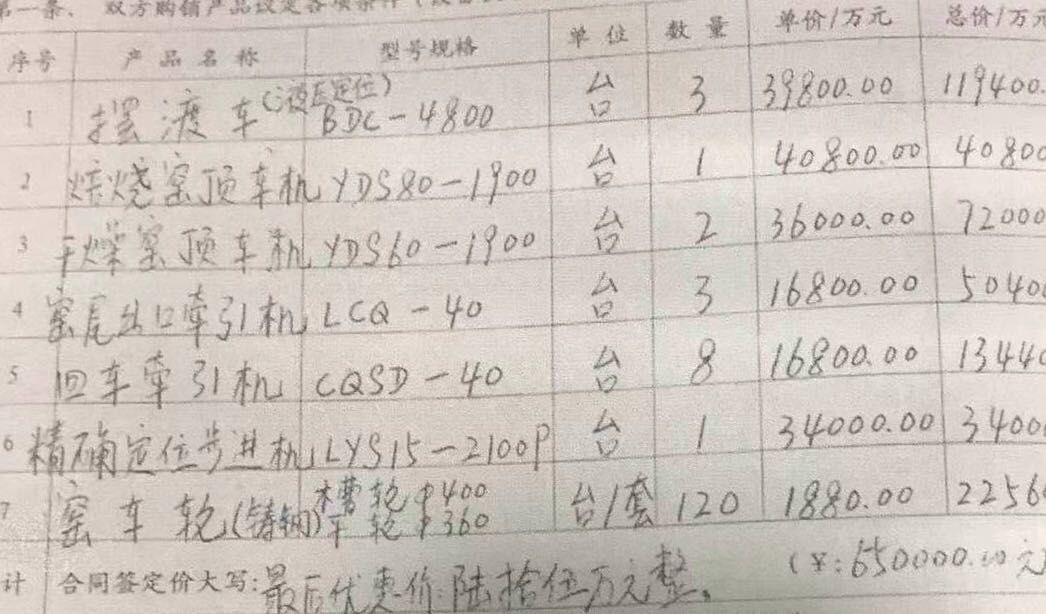 第一条、双方购销产品议定各项条件
序号 产品名称 型号规格 单位 数量 单价/万元 总价/万元
1 摆渡车(液压定位) BDC-4800 台 3 39800.00 119400.
2 焙烧窑顶车机 YDS80-1900 台 1 40800.00 40800
3 干燥窑顶车机 YDS60-1900 台 2 36000.00 72000
4 窑尾出口牵引机 LCQ-40 台 3 16800.00 5040
5 回车牵引机 CQSD-40 台 8 16800.00 1344
6 精确定位步进机 LYS15-2100P 台 1 34000.00 3400
7 窑车轮(铸钢) 槽轮φ400 车轮φ360 台/套 120 1880.00 2256
计 合同签定价大写:最后优惠价:陆拾伍万元整。 (¥:650000.00元